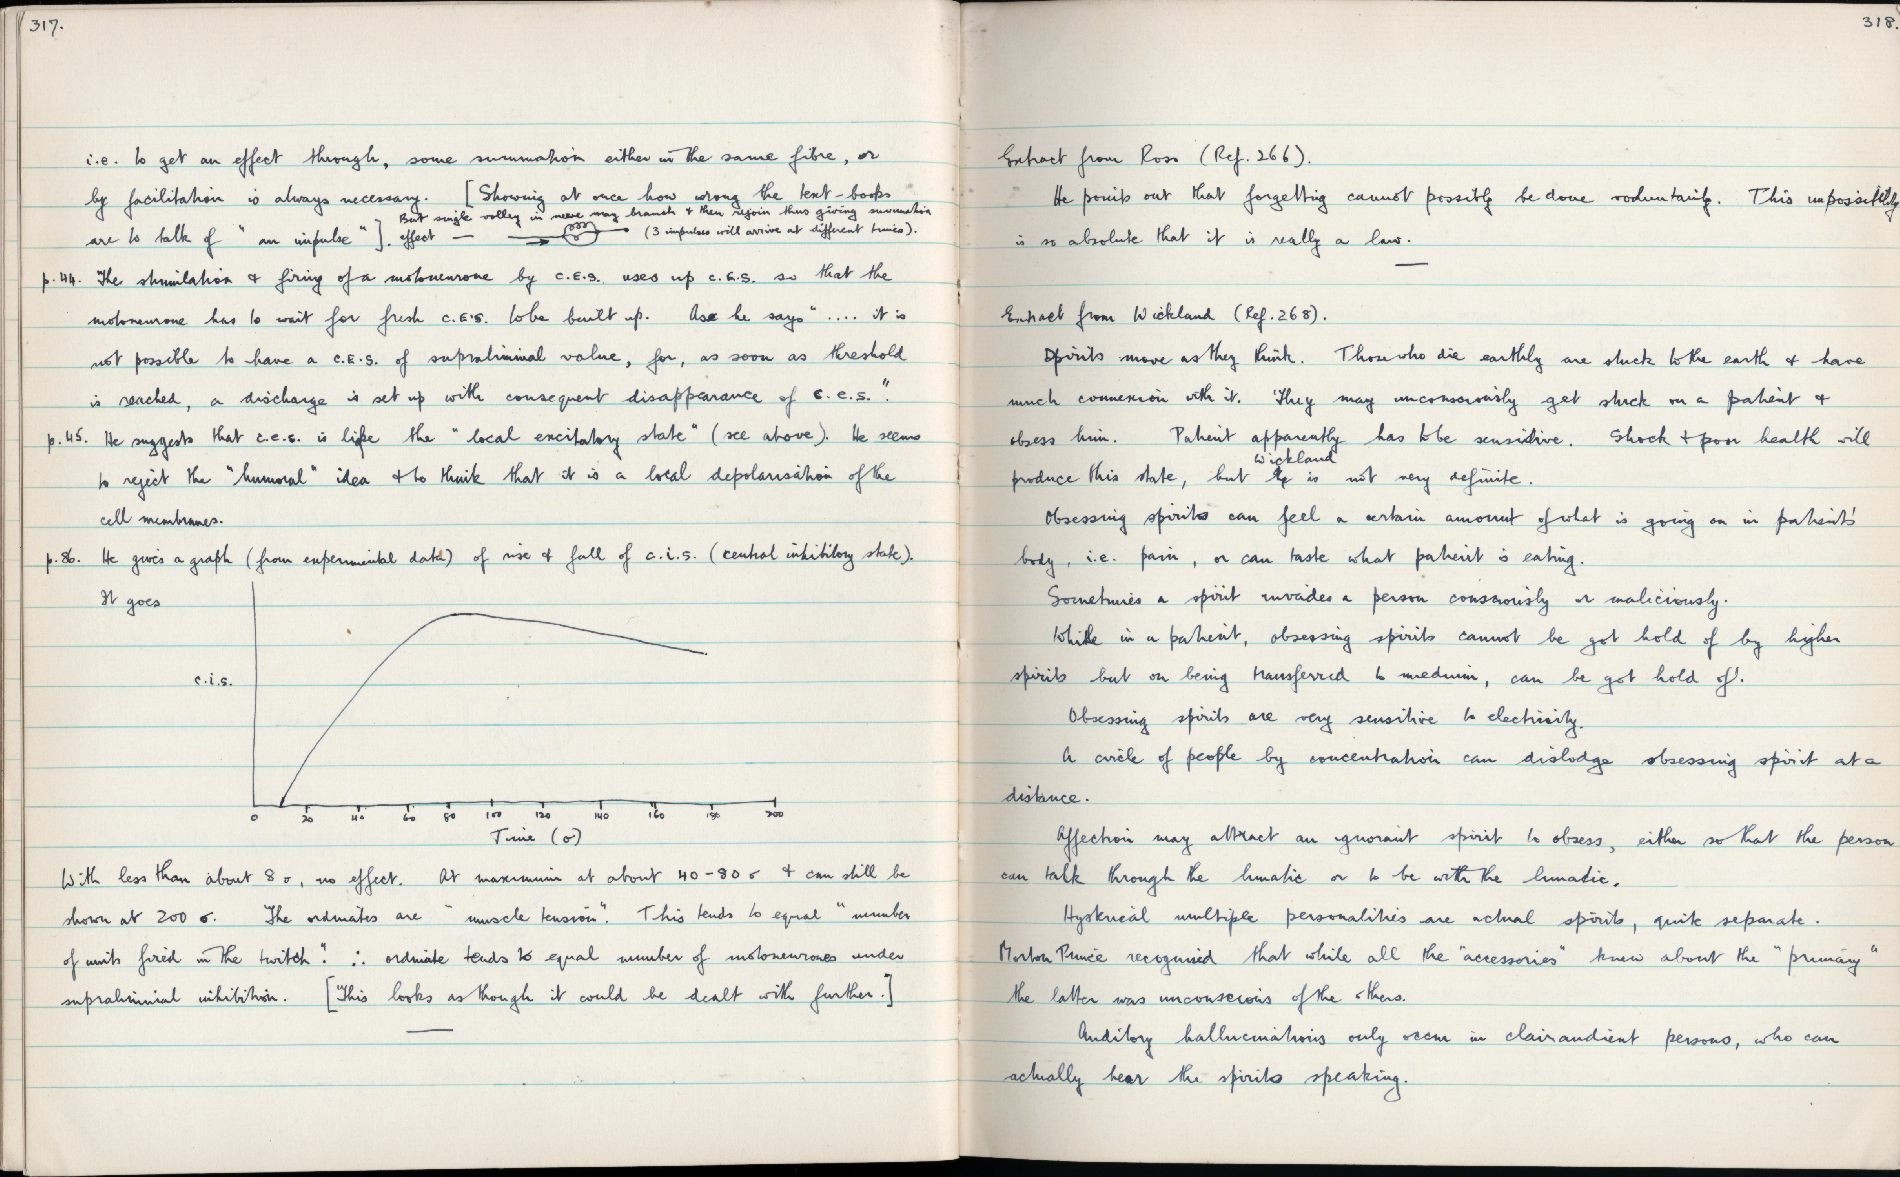 317.
i.e. to get an effect through, some summation either in the same fibre, or
by facilitation is always necessary. [Showing at once how wrong the text-books
But single volley in nerve may branch & then rejoin thus giving summation
are to talk of "an impulse"]. effect — (3 impulses will arrive at different times).
p.44. The stimulation & firing of a motoneurone by c.E.S. uses up c.E.S. so that the
motoneurone has to wait for fresh c.E.S. to be built up. As he says ".... it is
not possible to have a c.E.S. of supraliminal value, for, as soon as threshold
is reached, a discharge is set up with consequent disappearance of c.e.s.".
p.45. He suggests that c.e.s. is like the "local excitatory state" (see above). He seems
to reject the "humoral" idea & to think that it is a local depolarisation of the
cell membranes.
p.86. He gives a graph (from experimental data) of rise & fall of c.i.s. (central inhibitory state).
It goes
c.i.s.
0 20 40 60 80 100 120 140 160 180 200
Time (σ)
With less than about 8 σ, no effect. At maximum at about 40-80 σ & can still be
shown at 200 σ. The ordinates are "muscle tension". This tends to equal "number
of units fired in the twitch". ∴ ordinate tends to equal number of motoneurones under
supraliminal inhibition. [This looks as though it could be dealt with further.]
318.
Extract from Ross (Ref. 266).
He points out that forgetting cannot possibly be done voluntarily. This impossibility
is so absolute that it is really a law.
Extract from Wickland (Ref. 268).
Spirits move as they think. Those who die earthly are stuck to the earth & have
much connexion with it. They may unconsciously get stuck on a patient &
obsess him. Patient apparently has to be sensitive. Shock & poor health will
Wickland
produce this state, but is not very definite.
Obsessing spirits can feel a certain amount of what is going on in patient's
body, i.e. pain, or can taste what patient is eating.
Sometimes a spirit invades a person consciously or maliciously.
While in a patient, obsessing spirits cannot be got hold of by higher
spirits but on being transferred to medium, can be got hold of!.
Obsessing spirits are very sensitive to electricity.
A circle of people by concentration can dislodge obsessing spirit at a
distance.
Affection may attract an ignorant spirit to obsess, either so that the person
can talk through the lunatic or to be with the lunatic.
Hysterical multiple personalities are actual spirits, quite separate.
Morton Prince recognised that while all the "accessories" knew about the "primary"
the latter was unconscious of the others.
Auditory hallucinations only occur in clairaudient persons, who can
actually hear the spirits speaking.